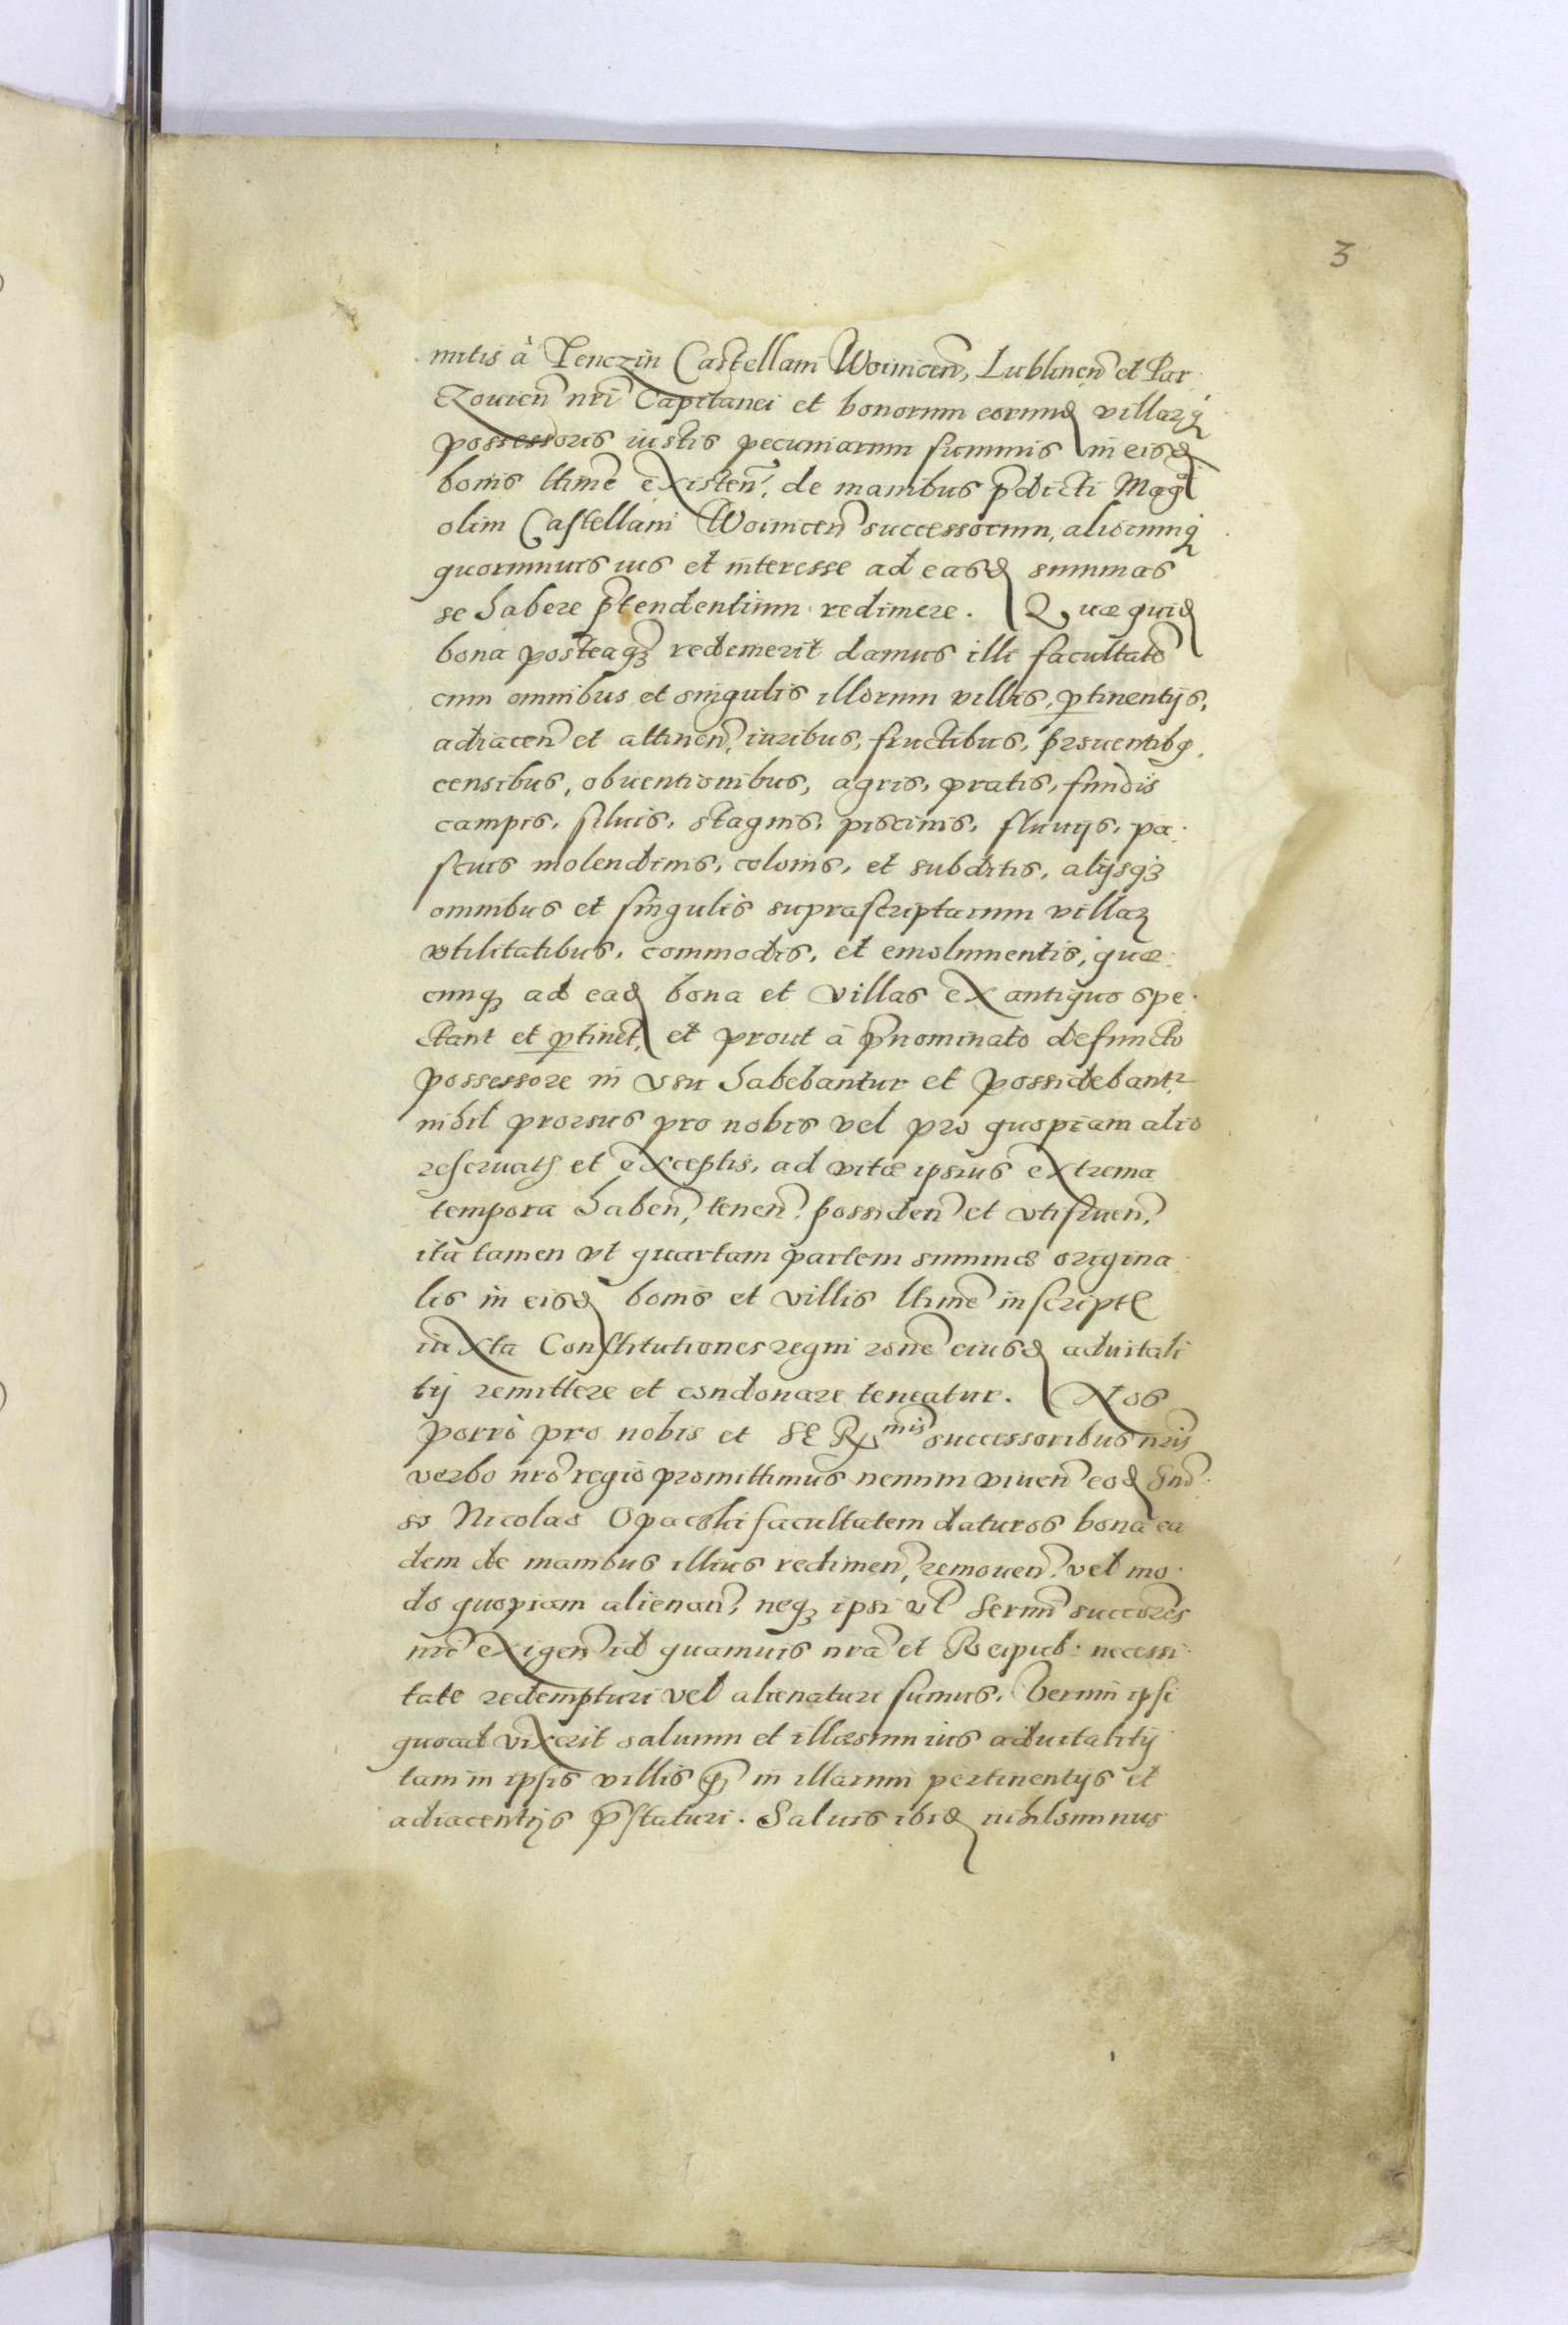 3
mitis à Tenczin Castellani Woinicen̄, Lublinen̄ et Par
czouien̄ nr̄i Capitanei et bonorum eorund villarq́
possessoris iustis pecuniarum summis in eisd
bonis ltimē existen̄, de manibus p̄dicti Mag
olim Castellani Woinicen̄ successorum, aliorumq́
quorumuis ius et interesse ad easd summas
se habere p̄tendentium redimere. Quæ quid
bona posteaq̄ redemerit damus illi facultatē
cum omnibus et singulis illorum villis, ptinentijs,
adiacen̄ et attinen̄, iuribus, fructibus, prouentibq
censibus, obuentionibus, agris, pratis, fundis
campis, siluis, stagnis, piscinis, fluuijs, pa
scuis molendinis, colonis, et subditis, alijsqз
omnibus et singulis suprascriptarum villar
vtilitatibus, commodis, et emolumentis, quæ
cunqз ad ead bona et villas ex antiquo spe
ctant et ptinēt, et prout à p̄nominato defuncto
possessore in vsu habebantur et possidebantr
nihil prorsus pro nobis vel pro quopiam alio
reseruatis et exceptis, ad vitæ ipsius extrema
tempora haben̄, tenen̄, possiden̄ et vtifruen̄,
ita tamen vt quartam partem summæ origina
lis in eisd bonis et villis ltimē inscriptę
iuxta Constitutiones regni ronē eiusd aduitali
tij remittere et condonare teneatur. Nos
porrò pro nobis et Sermis successoribus nr̄is
verbo nr̄o regio promittimus nemini viuen̄ eod Gnō
so Nicolao Opacski facultatem daturos bona ea
dem de manibus illius redimen̄, remouen̄ vel mo
do quopiam alienan̄, neqз ipsi vl Sermī succōres
nr̄i exigen̄ id quamuis nr̄a et Reipub. necessi
tate redempturi vel alienaturi sumus. Verum ipsi
quoad vixerit saluum et illæsum ius aduitalitij
tam in ipsis villis q̄ in illarum pertinentijs et
adiacentijs p̄staturi. Saluis ibid nihilominus